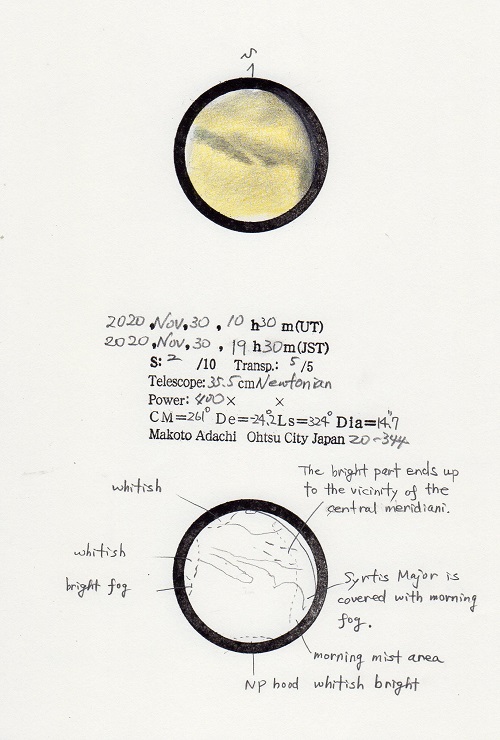 S
2020, Nov, 30, 10 h30 m(UT)
2020, Nov, 30, 19 h30m(JST)
S: 2 /10 Transp.: 5/5
Telescope: 35.5cm Newtonian
Power: 400× ×
CM=261° De=-24.2 Ls=324° Dia=14."7
Makoto Adachi Ohtsu City Japan 20-344
The bright part ends up
to the vicinity of the
central meridiani.
whitish
whitish
bright fog
Syrtis Major is
covered with morning
fog.
morning mist area
NP hood whitish bright